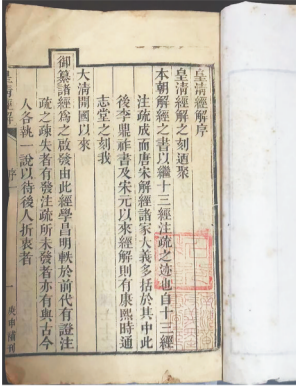 皇清經解序
皇清經解之刻迺聚
本朝解經之書以繼十三經注疏之迹也自十三經
注疏成而唐宋解經諸家大義多括於其中此
後李鼎祚書及宋元以來經解則有康熙時通
志堂之刻我
大清開國以來
御纂諸經爲之啟發由此經學昌明軼於前代有證注
疏之疏失者有發注疏所未發者亦有與古今
人各執一說以待後人折衷者
皇清經解
序
一
庚申補刊